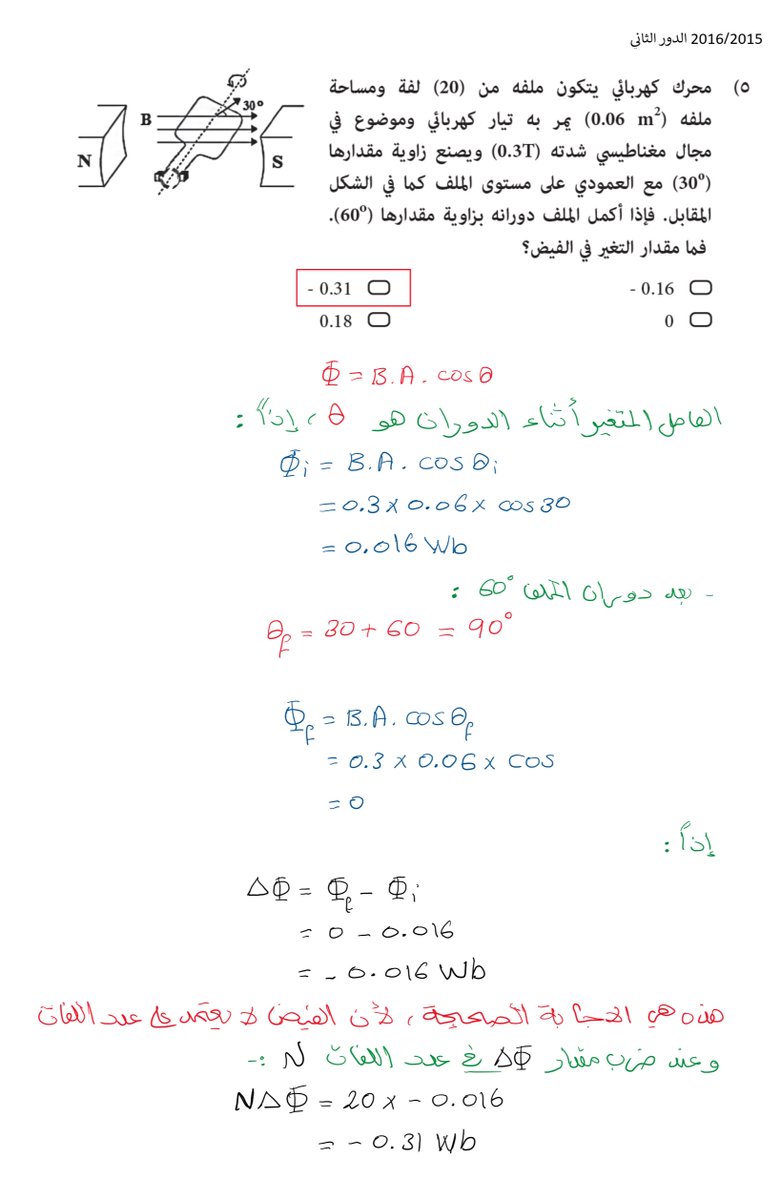 2016/2015 الدور الثاني
٥) محرك كهربائي يتكون ملفه من (20) لفة ومساحة
ملفه (0.06 m²) يمر به تيار كهربائي وموضوع في
مجال مغناطيسي شدته (0.3T) ويصنع زاوية مقدارها
(30°) مع العمودي على مستوى الملف كما في الشكل
المقابل. فإذا أكمل الملف دورانه بزاوية مقدارها (60°).
فما مقدار التغير في الفيض؟
N
B
30°
S
- 0.16
- 0.31
0
0.18
Φ = B.A. cosθ
العامل المتغير أثناء الدوران هو θ، إذاً :
Φi = B.A. cosθi
= 0.3 x 0.06 x cos30
= 0.016 Wb
- بعد دوران الملف 60° :
θf = 30 + 60 = 90°
Φf = B.A. cosθf
= 0.3 x 0.06 x cos
= 0
إذاً :
ΔΦ = Φf - Φi
= 0 - 0.016
= - 0.016 Wb
هذه هي الاجابة الصحيحة، لأن الفيض لا يعتمد على عدد اللفات
وعند ضرب مقدار ΔΦ في عدد اللفات N :-
NΔΦ = 20 x - 0.016
= - 0.31 Wb